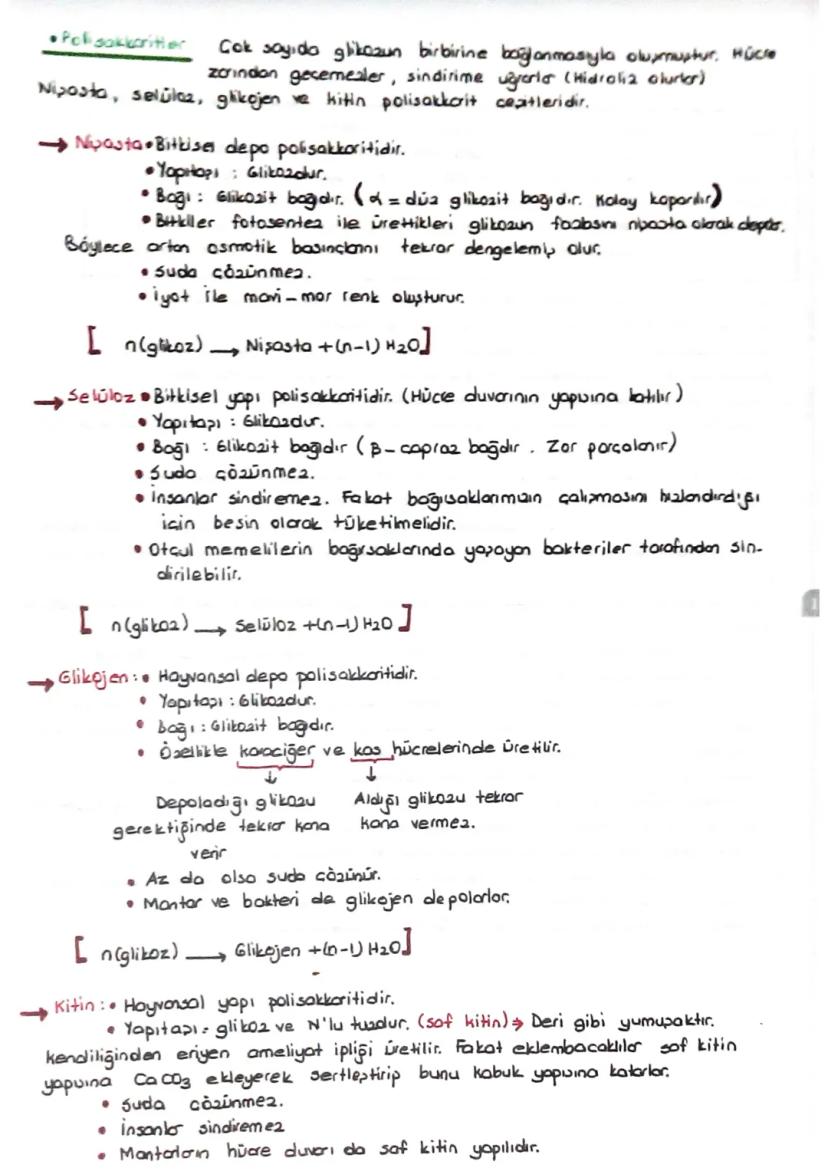 • Polisakkaritler Çok sayıda glikozun birbirine bağlanmasıyla oluşmuştur. Hücre
zarından geçemezler, sindirime uğrarlar (Hidroliz olurlar)
Nişasta, selüloz, glikojen ve kitin polisakkarit çeşitleridir.
→ Nişasta • Bitkisel depo polisakkaritidir.
• Yapıtaşı : Glikozdur.
• Bağı : Glikozit bağıdır. (α = düz glikozit bağıdır. Kolay koparılır)
• Bitkiler fotosentez ile ürettikleri glikozun fazlasını nişasta olarak depolar.
Böylece artan osmotik basınçlarını tekrar dengelemiş olur.
• Suda çözünmez.
• İyot ile mavi-mor renk oluşturur.
[ n(glikoz) → Nişasta + (n-1) H2O ]
→ Selüloz • Bitkisel yapı polisakkaritidir. (Hücre duvarının yapısına katılır)
• Yapıtaşı : Glikozdur.
• Bağı : Glikozit bağıdır (β- çapraz bağdır. Zor parçalanır)
• Suda çözünmez.
• İnsanlar sindiremez. Fakat bağısaklarımızın çalışmasını hızlandırdığı
için besin olarak tüketilmelidir.
• Otçul memelilerin bağırsaklarında yaşayan bakteriler tarafından sin-
dirilebilir.
[ n(glikoz) → Selüloz + (n-1) H2O ]
→ Glikojen : • Hayvansal depo polisakkaritidir.
• Yapıtaşı : Glikozdur.
• bağı : Glikozit bağıdır.
• Özellikle karaciğer ve kas hücrelerinde üretilir.
↓ ↓
Depoladığı glikozu Aldığı glikozu tekrar
gerektiğinde tekrar kana kana vermez.
verir
• Az da olsa suda çözünür.
• Mantar ve bakteri de glikojen depolarlar.
[ n(glikoz) → Glikojen + (n-1) H2O ]
→ Kitin : • Hayvansal yapı polisakkaritidir.
• Yapıtaşı = glikoz ve N'lu tuzdur. (saf kitin) → Deri gibi yumuşaktır.
kendiliğinden eriyen ameliyat ipliği üretilir. Fakat eklembacaklılar saf kitin
yapısına CaCO3 ekleyerek sertleştirip bunu kabuk yapısına katarlar.
• Suda çözünmez.
• İnsanlar sindiremez
• Mantarların hücre duvarı da saf kitin yapılıdır.